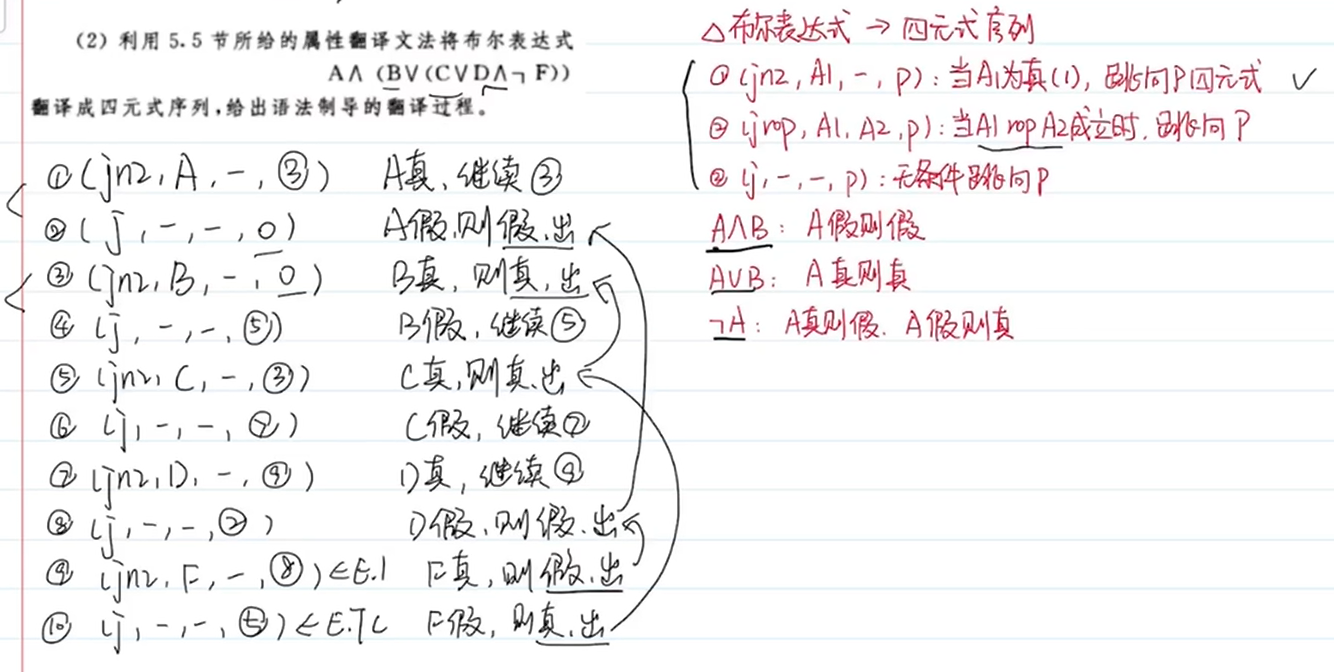 (2) 利用 5.5 节所给的属性翻译文法将布尔表达式
A∧ (B∨(C∨D∧¬ F))
翻译成四元式序列,给出语法制导的翻译过程。
①(jnz, A, -, ③) A真, 继续③
②( j, -, -, 0) A假, 则假.出
③(jnz, B, -, 0) B真, 则真, 出
④ (j, -, -, ⑤) B假, 继续⑤
⑤ (jnz, C, -, ③) C真, 则真.出
⑥ (j, -, -, ⑦) C假, 继续⑦
⑦ (jnz, D, -, ⑨) D真, 继续⑨
⑧ (j, -, -, ②) D假, 则假.出
⑨ (jnz, F, -, ⑧) ← E. F真, 则假.出
⑩ (j, -, -, ⑤) ← E.TC F假, 则真.出
△布尔表达式 → 四元式序列
① (jnz, A1, -, p): 当A1为真(1), 跳向P四元式 ✓
② (jrop, A1, A2, p): 当A1 rop A2成立时, 跳向P
③ (j, -, -, p): 无条件跳向P
A∧B: A假则假
A∪B: A真则真
¬A: A真则假. A假则真